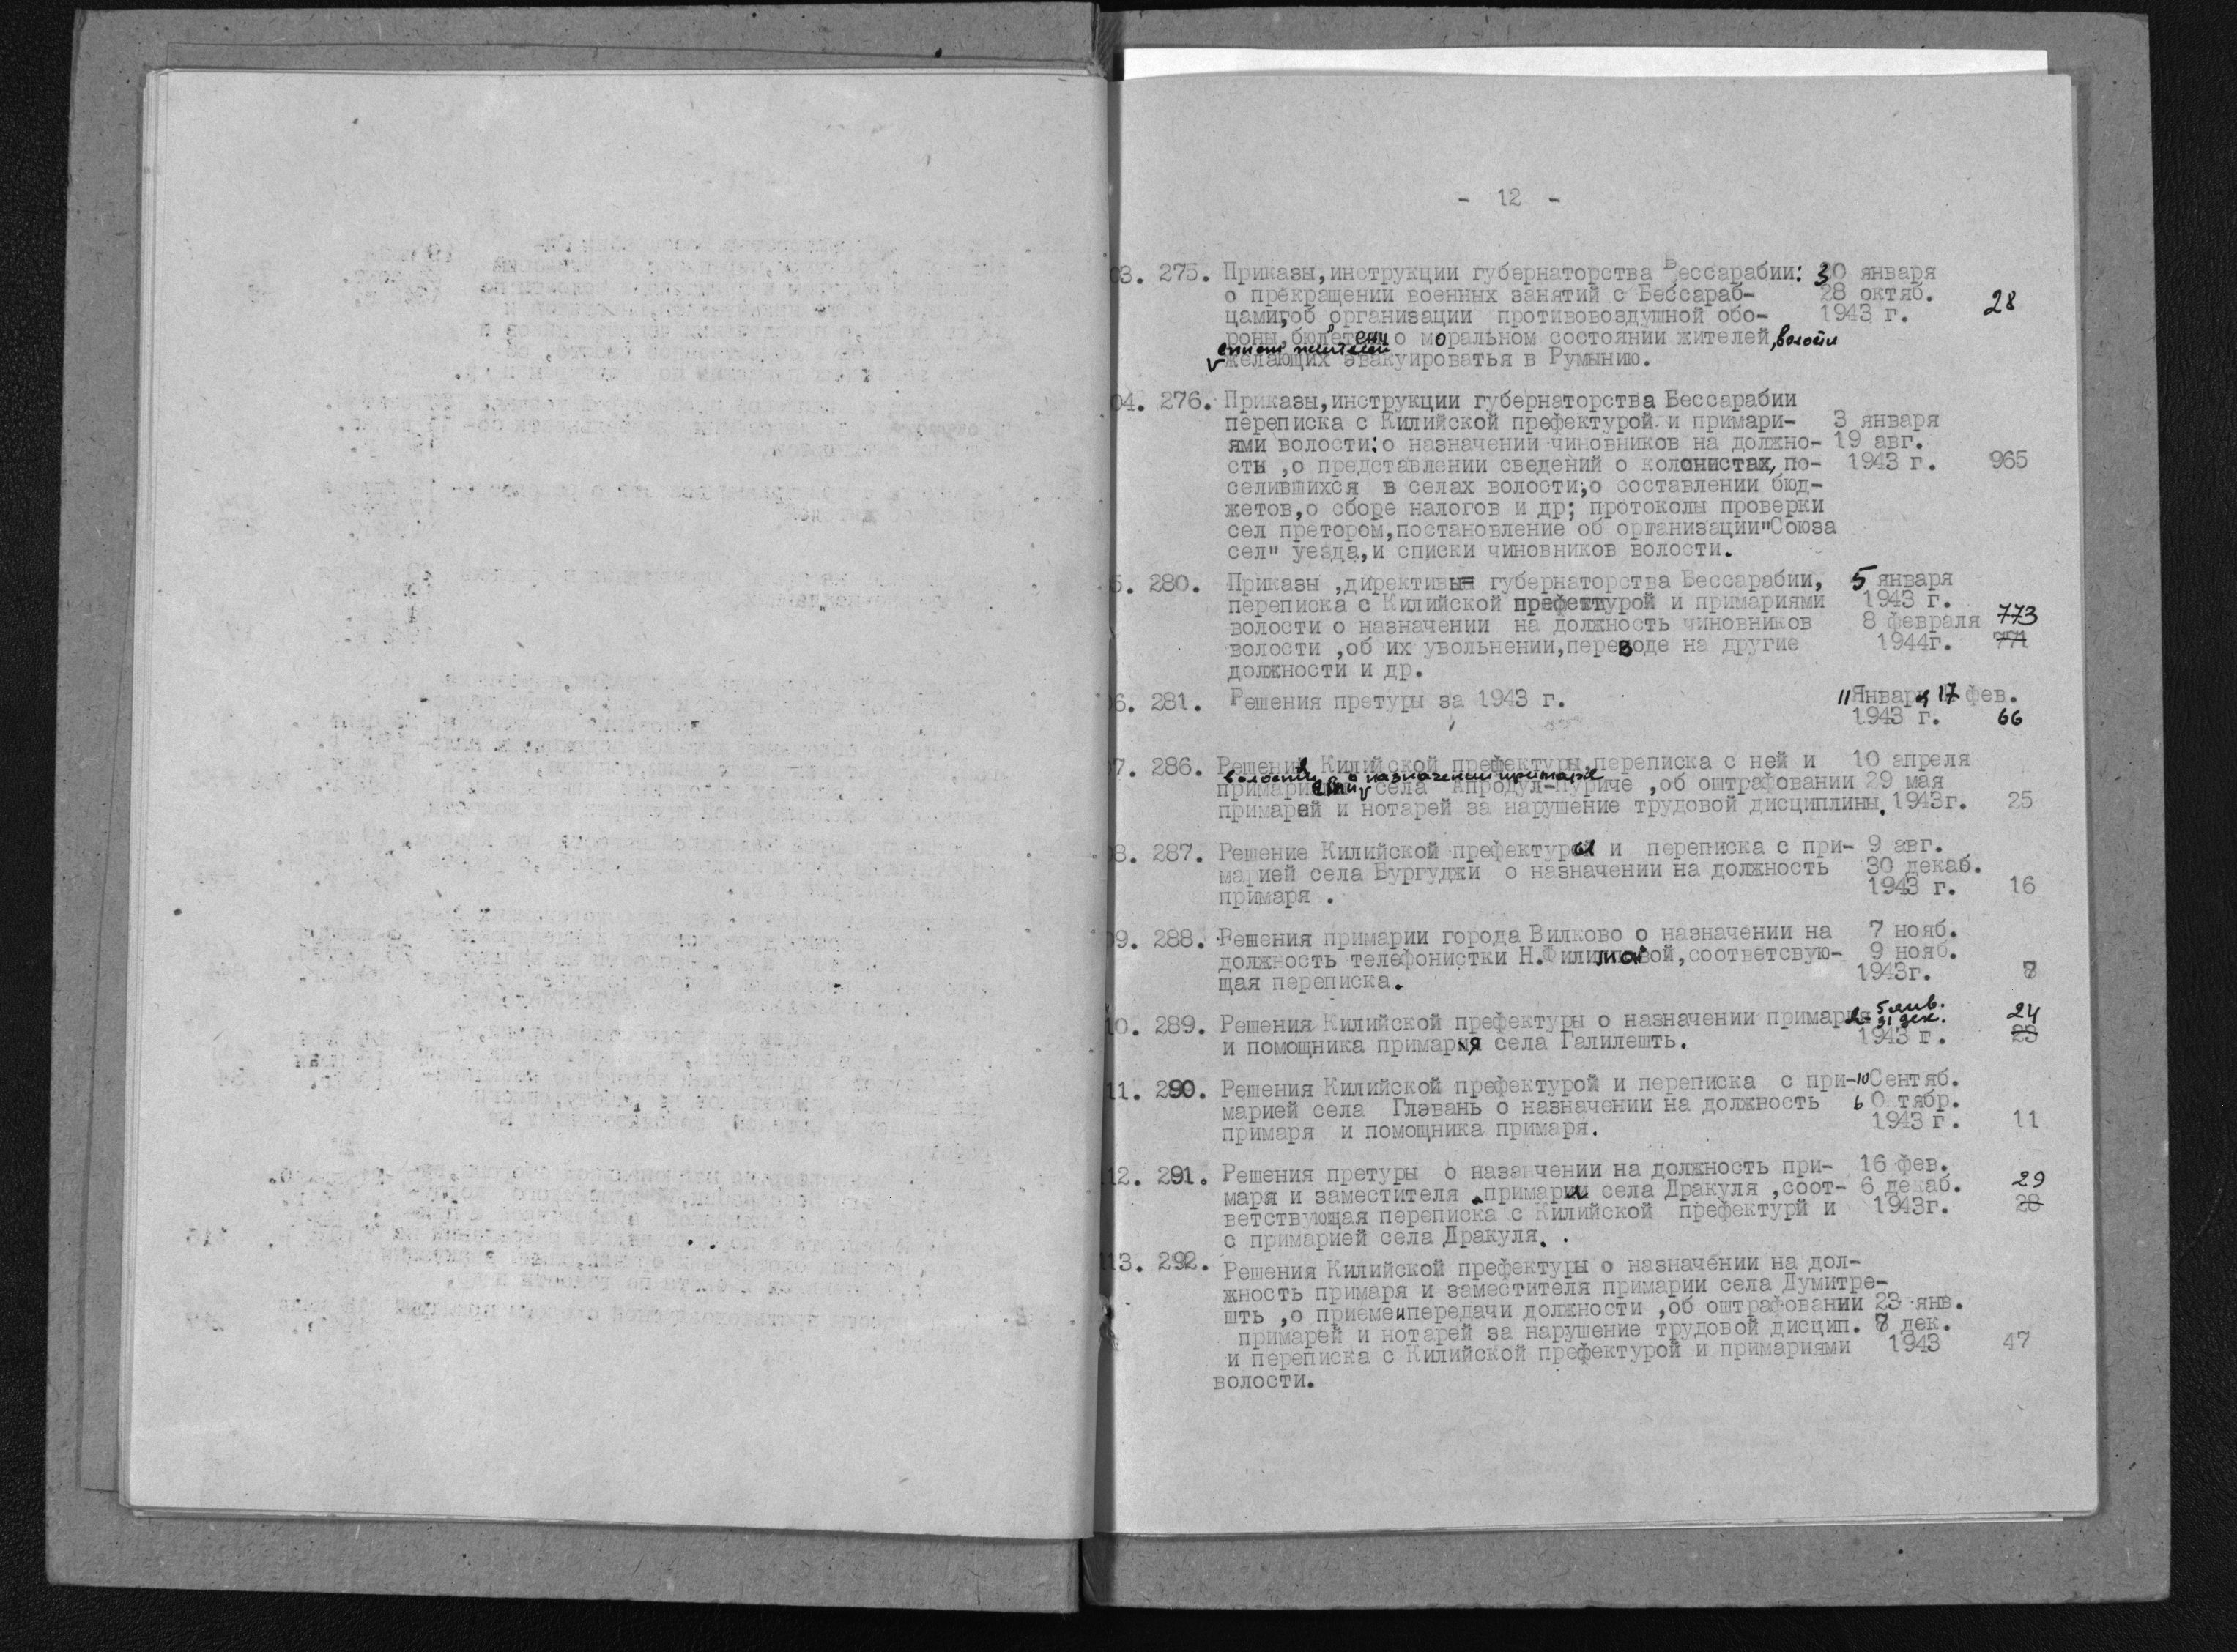 - 12 -
03. 275. Приказы,инструкции губернаторства Бессарабии: 30 января
о прекращении военных занятий с Бессараб- 28 октяб.
цами,об организации противовоздушной обо- 1943 г. 28
роны,бюлетени о моральном состоянии жителей, волости
списки жителей
желающих эвакуироватья в Румынию.
04. 276. Приказы,инструкции губернаторства Бессарабии
переписка с Килийской префектурой и примари- 3 января
ями волости:о назначении чиновников на должно- 19 авг.
сть ,о представлении сведений о колонистах, по- 1943 г. 965
селившихся в селах волости;о составлении бюд-
жетов,о сборе налогов и др; протоколы проверки
сел претором,постановление об организации"Союза
сел" уезда,и списки чиновников волости.
5. 280. Приказы ,директивы губернаторства Бессарабии, 5 января
переписка с Килийской префектурой и примариями 1943 г.
волости о назначении на должность чиновников 8 февраля 773
волости ,об их увольнении,переводе на другие 1944г. 771
должности и др.
6. 281. Решения претуры за 1943 г. 11 Января 17 фев.
1943 г. 66
7. 286. Решения Килийской префектуры,переписка с ней и 10 апреля
волости о назначении примаря
примариями села Апродул-Пуриче ,об оштрафовании 29 мая
примарей и нотарей за нарушение трудовой дисциплины. 1943г. 25
08. 287. Решение Килийской префектуры и переписка с при- 9 авг.
марией села Бургуджи о назначении на должность 30 декаб.
примаря . 1943 г. 16
09. 288. Решения примарии города Вилково о назначении на 7 нояб.
должность телефонистки Н.Филимоновой,соответсвую- 9 нояб.
щая переписка. 1943г. 7
10. 289. Решения Килийской префектуры о назначении примаря 5 янв. 31 дек. 24
и помощника примаря села Галилешть. 1943 г. 23
11. 290. Решения Килийской префектурой и переписка с при- 10 Сентяб.
марией села Глэвань о назначении на должность 6 Октябр.
примаря и помощника примаря. 1943 г. 11
12. 291. Решения претуры о назанчении на должность при- 16 фев.
маря и заместителя примари села Дракуля ,соот- 6 декаб. 29
ветствующая переписка с Килийской префектури и 1943г. 28
с примарией села Дракуля. .
13. 292. Решения Килийской префектуры о назначении на дол-
жность примаря и заместителя примарии села Думитре-
шть ,о приеме и передачи должности ,об оштрафовании 23 янв.
примарей и нотарей за нарушение трудовой дисцип. 7 дек.
и переписка с Килийской префектурой и примариями 1943 47
волости.